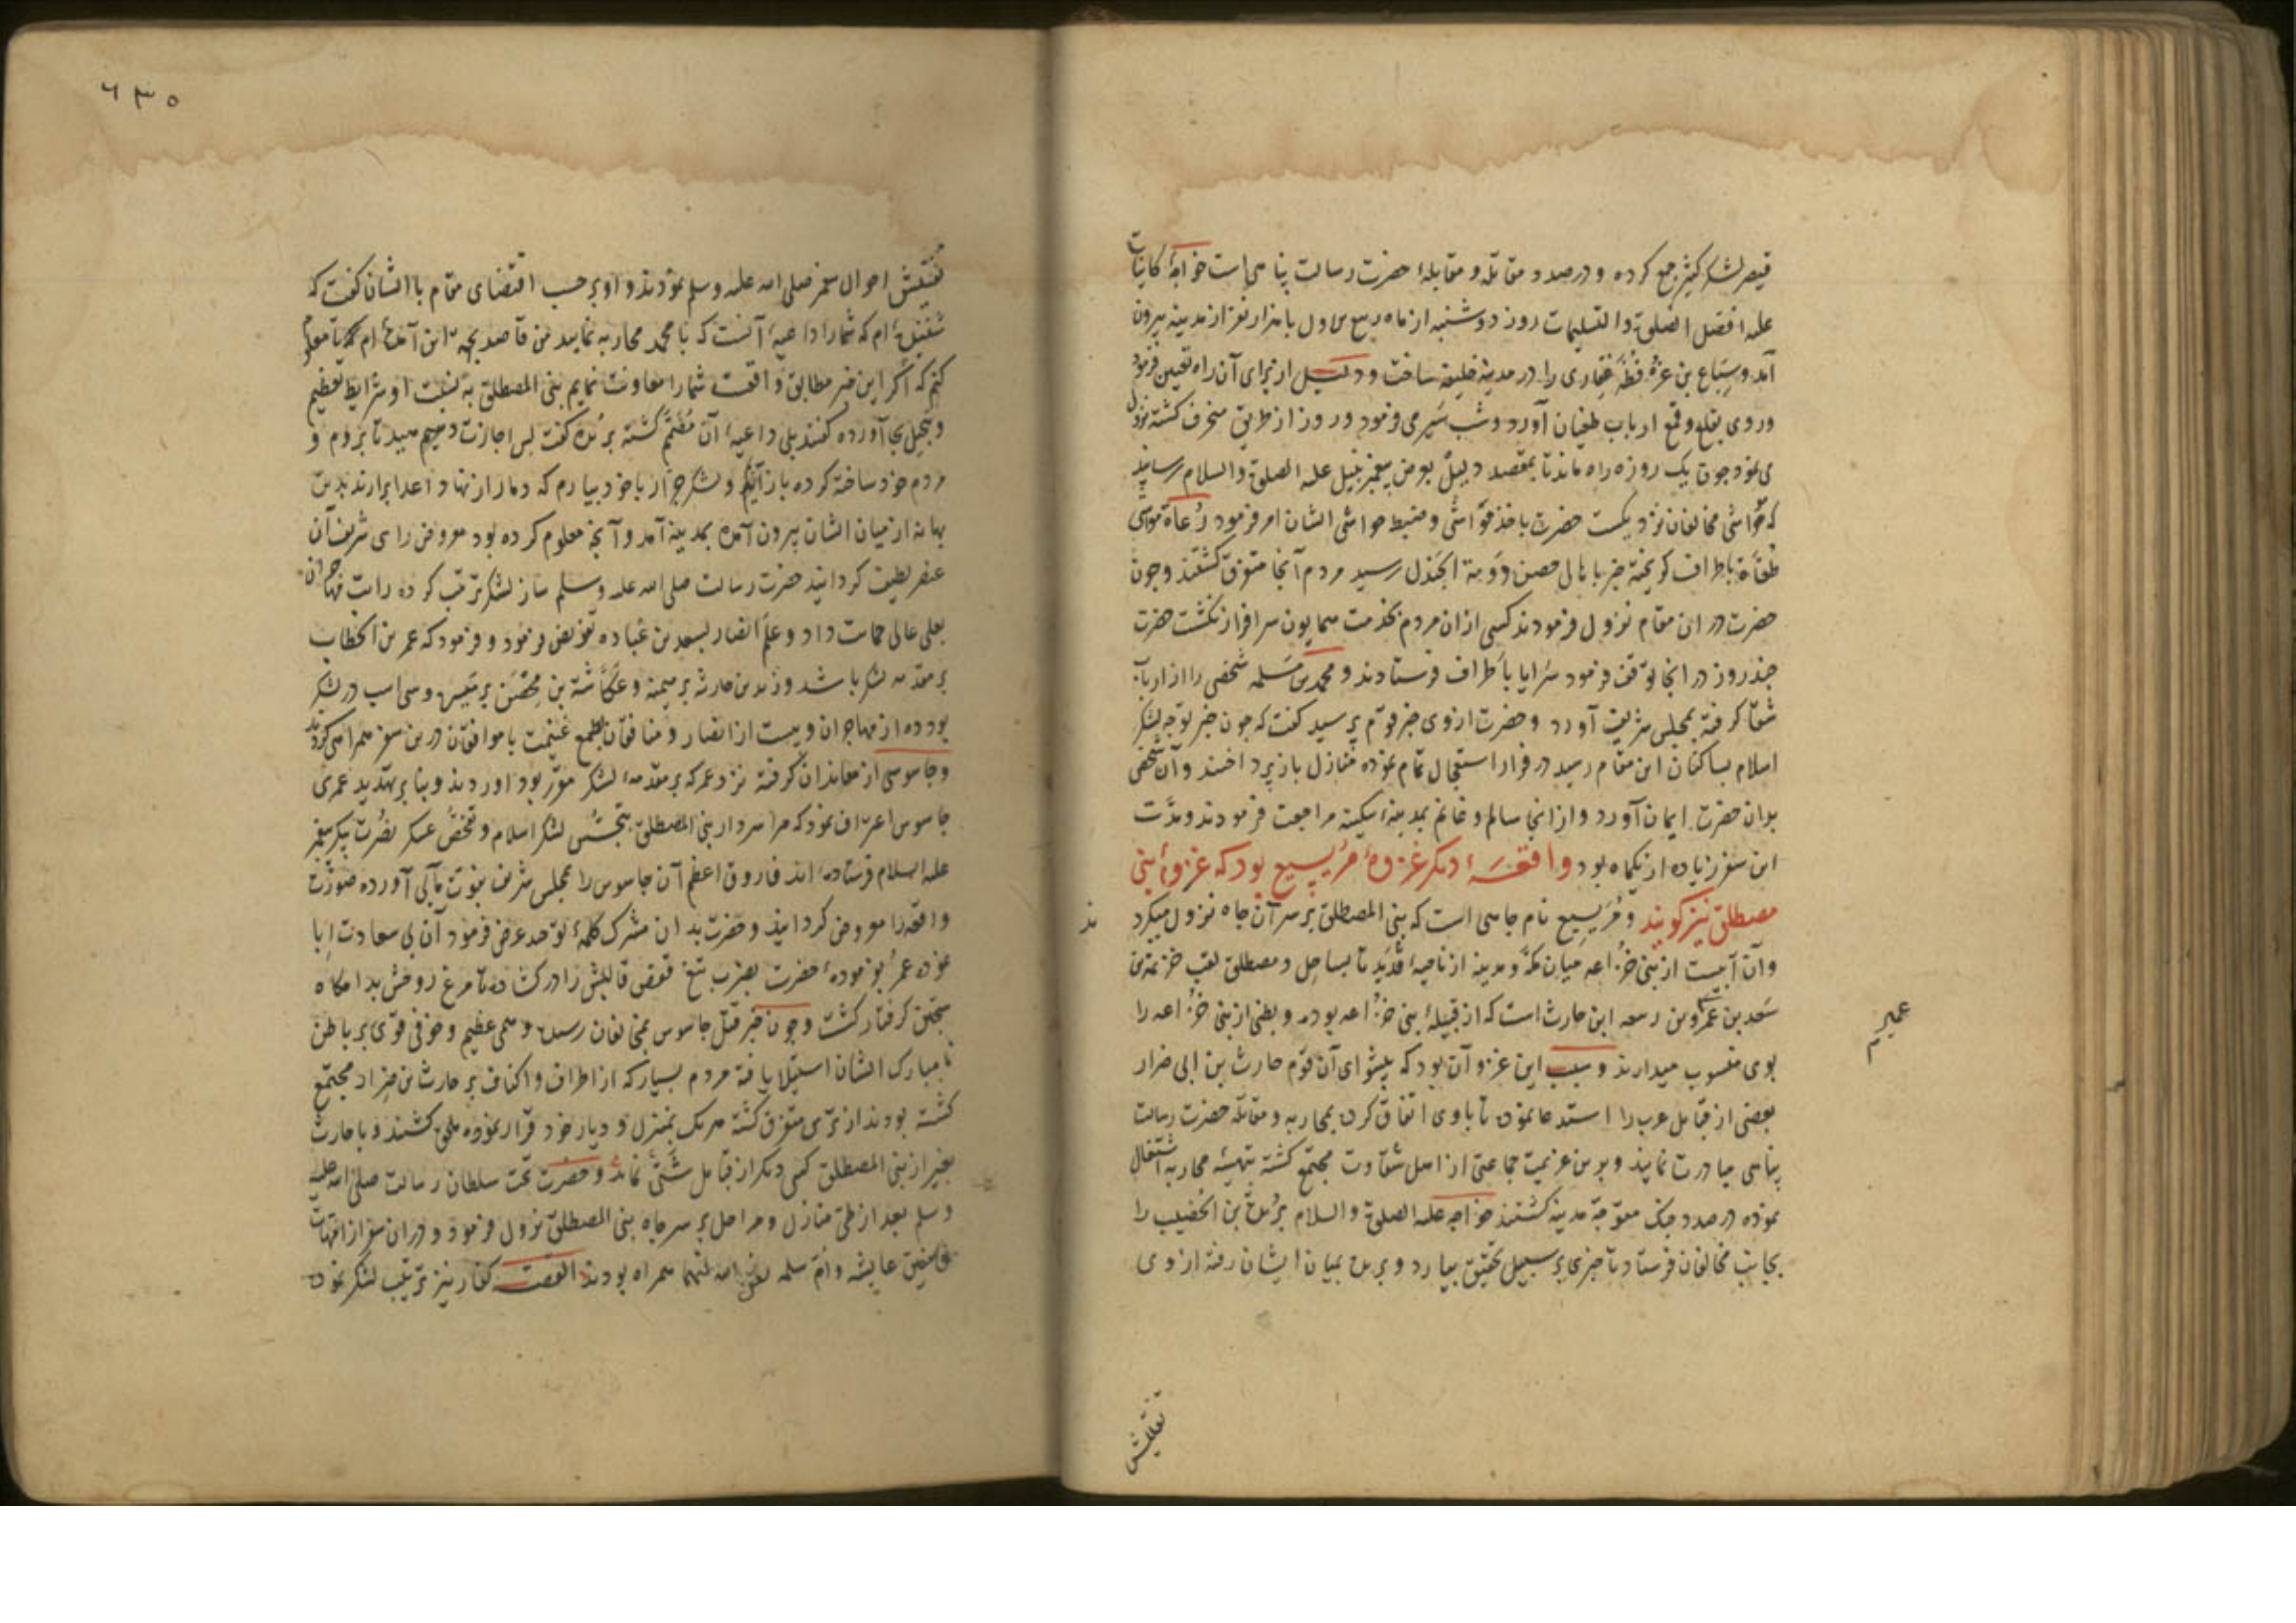 قیصر لشکر کثیر جمع کرده و درصدد مقاتله و مقابلهٔ حضرت رسالت پناهی است خواجهٔ کاینات
علیه افضل الصلوة والتسلیمات روز دوشنبه از ماه ربیع الاول با هزار نفر از مدینه بیرون
آمد و سباع بن عرفطه غفاری را در مدینه خلیفه ساخت و دلیل از برای آن راه تعیین فرمود
و روی بقلع و قمع ارباب طغیان آورد و شب سیر می فرمود و روز از طریق منحرف کشته نزول
می نمود چون یک روزه راه ماند تا بمقصد دلیل بعرض پیغمبر علیه الصلوة والسلام رسانید
که مواشی مخالفان نزدیکست حضرت باخذ مواشی و ضبط حواشی ایشان امر فرمود رعاة مواشی
باطراف کریخته خبر باهالی حصن دومة الجندل رسید مردم آنجا متفرق کشتند و چون
حضرت در ان مقام نزول فرمودند کسی از ان مردم بخدمت همایون سرافراز نکشت حضرت
چند روز در انجا توقف فرمود سرایا باطراف فرستادند و محمد بن مسلمه شخصی را از ارباب
شقا کرفته بمجلس شریف آورد و حضرت از وی خبر قوم پرسید کفت که چون خبر توجه لشکر
اسلام بساکنان این مقام رسید در فرار استعجال تمام نموده منازل باز پرداختند و آن شخص
بران حضرت ایمان آورد و از انجا سالم و غانم بمدینهٔ سکینه مراجعت فرمودند و مدت
این سفر زیاده از یکماه بود واقعهٔ دیکر غزوهٔ مریسیع بود که غزوهٔ بنی
مصطلق نیز کویند و مریسیع نام چاهی است که بنی المصطلق بر سر آن چاه نزول میکرد
ند
و آن آبیست از بنی خزاعه میان مکه و مدینه از ناحیهٔ قدید تا بساحل و مصطلق لقب خزیمة بن
سعد بن عمرو بن ربیعه ابن حارث است که از قبیلهٔ بنی خزاعه بوده و بطنی از بنی خزاعه را
بوی منسوب میدارند و سبب این غزو آن بود که پیشوای آن قوم حارث بن ابی ضرار
بعضی از قبایل عرب را استدعا نموده تا باوی اتفاق کرده بمحاربه و مقاتله حضرت رسالت
پناهی مبادرت نمایند و برین عزیمت جماعتی از اهل شقاوت مجتمع کشته بتهیئه محاربه اشتغال
نموده درصدد جنک متوجه مدینه کشتند خواجه علیه الصلوة والسلام بریدة بن الحصیب را
بجانب مخالفان فرستاد تا خبری بر سبیل تحقیق بیارد و بریده بمیان ایشان رفته از وی
۶۳۵
تفتیش احوال پیغمبر صلی الله علیه وسلم نمودند و او بر حسب اقتضای مقام با ایشان کفت که
شنیده ام که شما را داعیهٔ آنست که با محمد محاربه نمایید من قاصد بجهة این آمده ام تا معلوم
کنم که اگر این خبر مطابق واقعست شما را معاونت نمایم بنی المصطلق به نسبت او شرایط تعظیم
و تبجیل بجا آورده کفتند بلی داعیهٔ آن مصمم کشته بریده کفت پس اجازت دهیم تا بروم و
مردم خود ساخته کرده باز آیم و لشکر جرار با خود بیارم که دمار از نهاد اعدا برارند بدین
بهانه از میان ایشان بیرون آمده بمدینه آمد و آنچه معلوم کرده بود معروض رای شریف آن
عنصر لطیف کردانید حضرت رسالت صلی الله علیه وسلم ساز لشکر ترتیب کرده رایت مهاجران
بعلی عالی داد و علم انصار بسعد بن عباده تفویض فرمود و فرمود که عمر بن الخطاب
بر مقدمه لشکر باشد و زید بن حارثه بر میمنه و عکاشة بن محصن بر میسره و سی اسب در لشکر
بود ده از مهاجران و بیست از انصار و منافقان بطمع غنیمت با موافقان درین سفر همراهی کردند
و جاسوسی از معاندان کرفته نزد عمر که بر مقدمهٔ لشکر مقرر بود اوردند و بنا بر تهدید عمری
جاسوس اعتراف نمود که مرا سردار بنی المصطلق بتجسس لشکر اسلام و تفحص عسکر نصرت پیکر پیغمبر
علیه السلام فرستاده اند فاروق اعظم آن جاسوس را بمجلس شریف نبوت مآبی آورده صورت
واقعه را معروض کردانید و حضرت بدان مشرک کلمهٔ توحید عرض فرمود آن بی سعادت ابا
نموده عمر بفرمودهٔ حضرت بضرب تیغ قفص قالبش را درکشاده تا مرغ روحش بدامکاه
سجین کرفتار کشت و چون خبر قتل جاسوس بمخالفان رسید وهمی عظیم و خوفی قوی بر باطن
نامبارک ایشان استیلا یافته مردم بسیار که از اطراف و اکناف بر حارث بن ضرار مجتمع
کشته بودند از ترس متفرق کشته هر یک بمنزل و دیار خود قرار نموده ملحق کشتند و با حارث
بغیر از بنی المصطلق کسی دیکر از قبایل شتی نماند و حضرت تخت سلطان رسالت صلی الله علیه
وسلم بعد از طی منازل و مراحل بر سر چاه بنی المصطلق نزول فرمود و در ان سفر از امهات
عایشه و ام سلمه رضی الله عنهما همراه بودند القصه کفار نیز ترتیب لشکر نموده